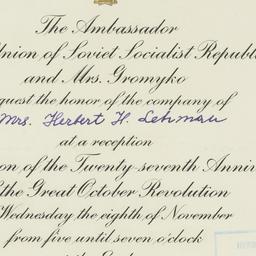 The Ambassador
Union of Soviet Socialist Republ
and Mrs. Gromyko
quest the honor of the company of
Mrs. Herbert H. Lehman
at a reception
on of the Twenty-seventh Anniv
the Great October Revolution
Wednesday the eighth of November
from five until seven o'clock